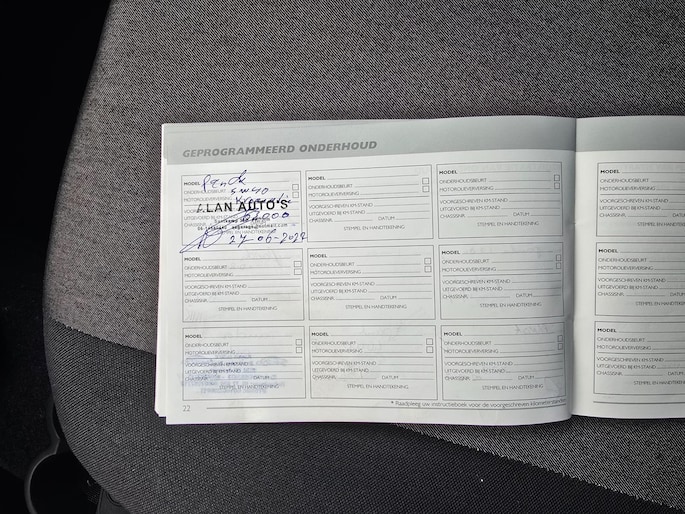 GEPROGRAMMEERD ONDERHOUD
MODEL Panda
ONDERHOUDSBEURT 5W40
MOTOROLIEVERVERSING
LAN AUTO'S
27-06-2022
MODEL
ONDERHOUDSBEURT
MOTOROLIEVERVERSING
VOORGESCHREVEN KM-STAND
UITGEVOERD BIJ KM-STAND
CHASSISNR. DATUM
STEMPEL EN HANDTEKENING
MODEL
ONDERHOUDSBEURT
MOTOROLIEVERVERSING
VOORGESCHREVEN KM-STAND
UITGEVOERD BIJ KM-STAND
CHASSISNR. DATUM
STEMPEL EN HANDTEKENING
MODEL
ONDERHOUDSBEURT
MOTOROLIEVERVERSING
VOORGESCHREVEN KM-STAND
UITGEVOERD BIJ KM-STAND
CHASSISNR. DATUM
STEMPEL EN HANDTEKENING
MODEL
ONDERHOUDSBEURT
MOTOROLIEVERVERSING
VOORGESCHREVEN KM-STAND
UITGEVOERD BIJ KM-STAND
CHASSISNR. DATUM
STEMPEL EN HANDTEKENING
MODEL
ONDERHOUDSBEURT
MOTOROLIEVERVERSING
VOORGESCHREVEN KM-STAND
UITGEVOERD BIJ KM-STAND
CHASSISNR. DATUM
STEMPEL EN HANDTEKENING
MODEL
ONDERHOUDSBEURT
MOTOROLIEVERVERSING
VOORGESCHREVEN KM-STAND
UITGEVOERD BIJ KM-STAND
CHASSISNR. DATUM
STEMPEL EN HANDTEKENING
MODEL
ONDERHOUDSBEURT
MOTOROLIEVERVERSING
VOORGESCHREVEN KM-STAND
UITGEVOERD BIJ KM-STAND
CHASSISNR. DATUM
STEMPEL EN HANDTEKENING
MODEL
ONDERHOUDSBEURT
MOTOROLIEVERVERSING
VOORGESCHREVEN KM-STAND
UITGEVOERD BIJ KM-STAND
CHASSISNR. DATUM
STEMPEL EN HANDTEKENING
22
* Raadpleeg uw instructieboek voor de voorgeschreven kilometerstanden
MODEL
ONDERHOUDSBEURT
MOTOROLIEVERVERSING
VOORGESCHREVEN KM-STAND
UITGEVOERD BIJ KM-STAND
CHASSISNR.
STEMPEL EN HAND
MODEL
ONDERHOUDSBEURT
MOTOROLIEVERVERSING
VOORGESCHREVEN KM-STAND
UITGEVOERD BIJ KM-STAND
CHASSISNR.
STEMPEL EN HAND
MODEL
ONDERHOUDSBEURT
MOTOROLIEVERVERSING
VOORGESCHREVEN KM-STAND
UITGEVOERD BIJ KM-STAND
CHASSISNR.
STEMPEL EN HAND